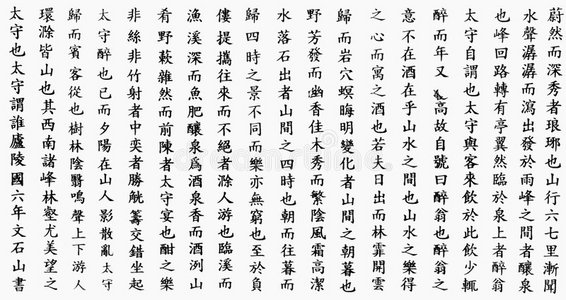 蔚然而深秀者琅琊也山行六七里漸聞
水聲潺潺而瀉出發於雨峰之間者釀泉
也峰回路轉有亭翼然臨於泉上者醉翁
太守自謂也太守與客來飲於此飲少輒
醉而年又高故自號曰醉翁也醉翁
意不在酒在乎山水之間也山水之樂得
之心而寓之酒也若夫日出而林霏開雲
歸而岩穴暝晦明變化者山間之朝暮也
野芳發而幽香佳木秀而繁陰風霜高潔
水落石出者山間之四時也朝而往暮而
歸四時之景不同而樂亦無窮也至於負
僂提攜往來而不絕者滁人游也臨溪而
漁溪深而魚肥釀泉為酒泉香而酒洌山
肴野蔌雜然而前陳者太守宴也酣之樂
非絲非竹射者中奕者勝觥籌交錯坐起
太守醉也已而夕陽在山人影散亂太守
歸而賓客從也樹林陰翳鳴聲上下游人
環滁皆山也其西南諸峰林壑尤美望之
太守也太守謂誰廬陵國六年文石山書